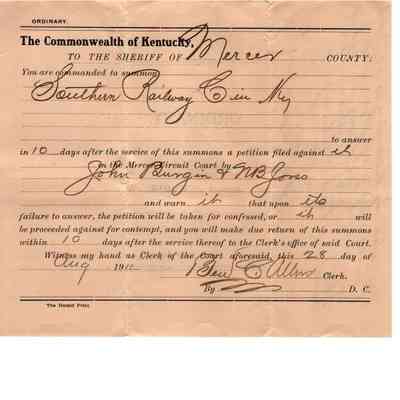 ORDINARY.
The Commonwealth of Kentucky,
TO THE SHERIFF OF Mercer COUNTY:
You are commanded to summon
Southern Railway C in Ky
to answer
in 10 days after the service of this summons a petition filed against it
in the Mercer Circuit Court by
John Burgin & NB
and warn it that upon its
failure to answer, the petition will be taken for confessed, or it will
be proceeded against for contempt, and you will make due return of this summons
within 10 days after the service thereof to the Clerk's office of said Court.
Witness my hand as Clerk of the Court aforesaid, this 28 day of
Aug 191 Ben C Allin Clerk.
By D. C.
The Herald Print.